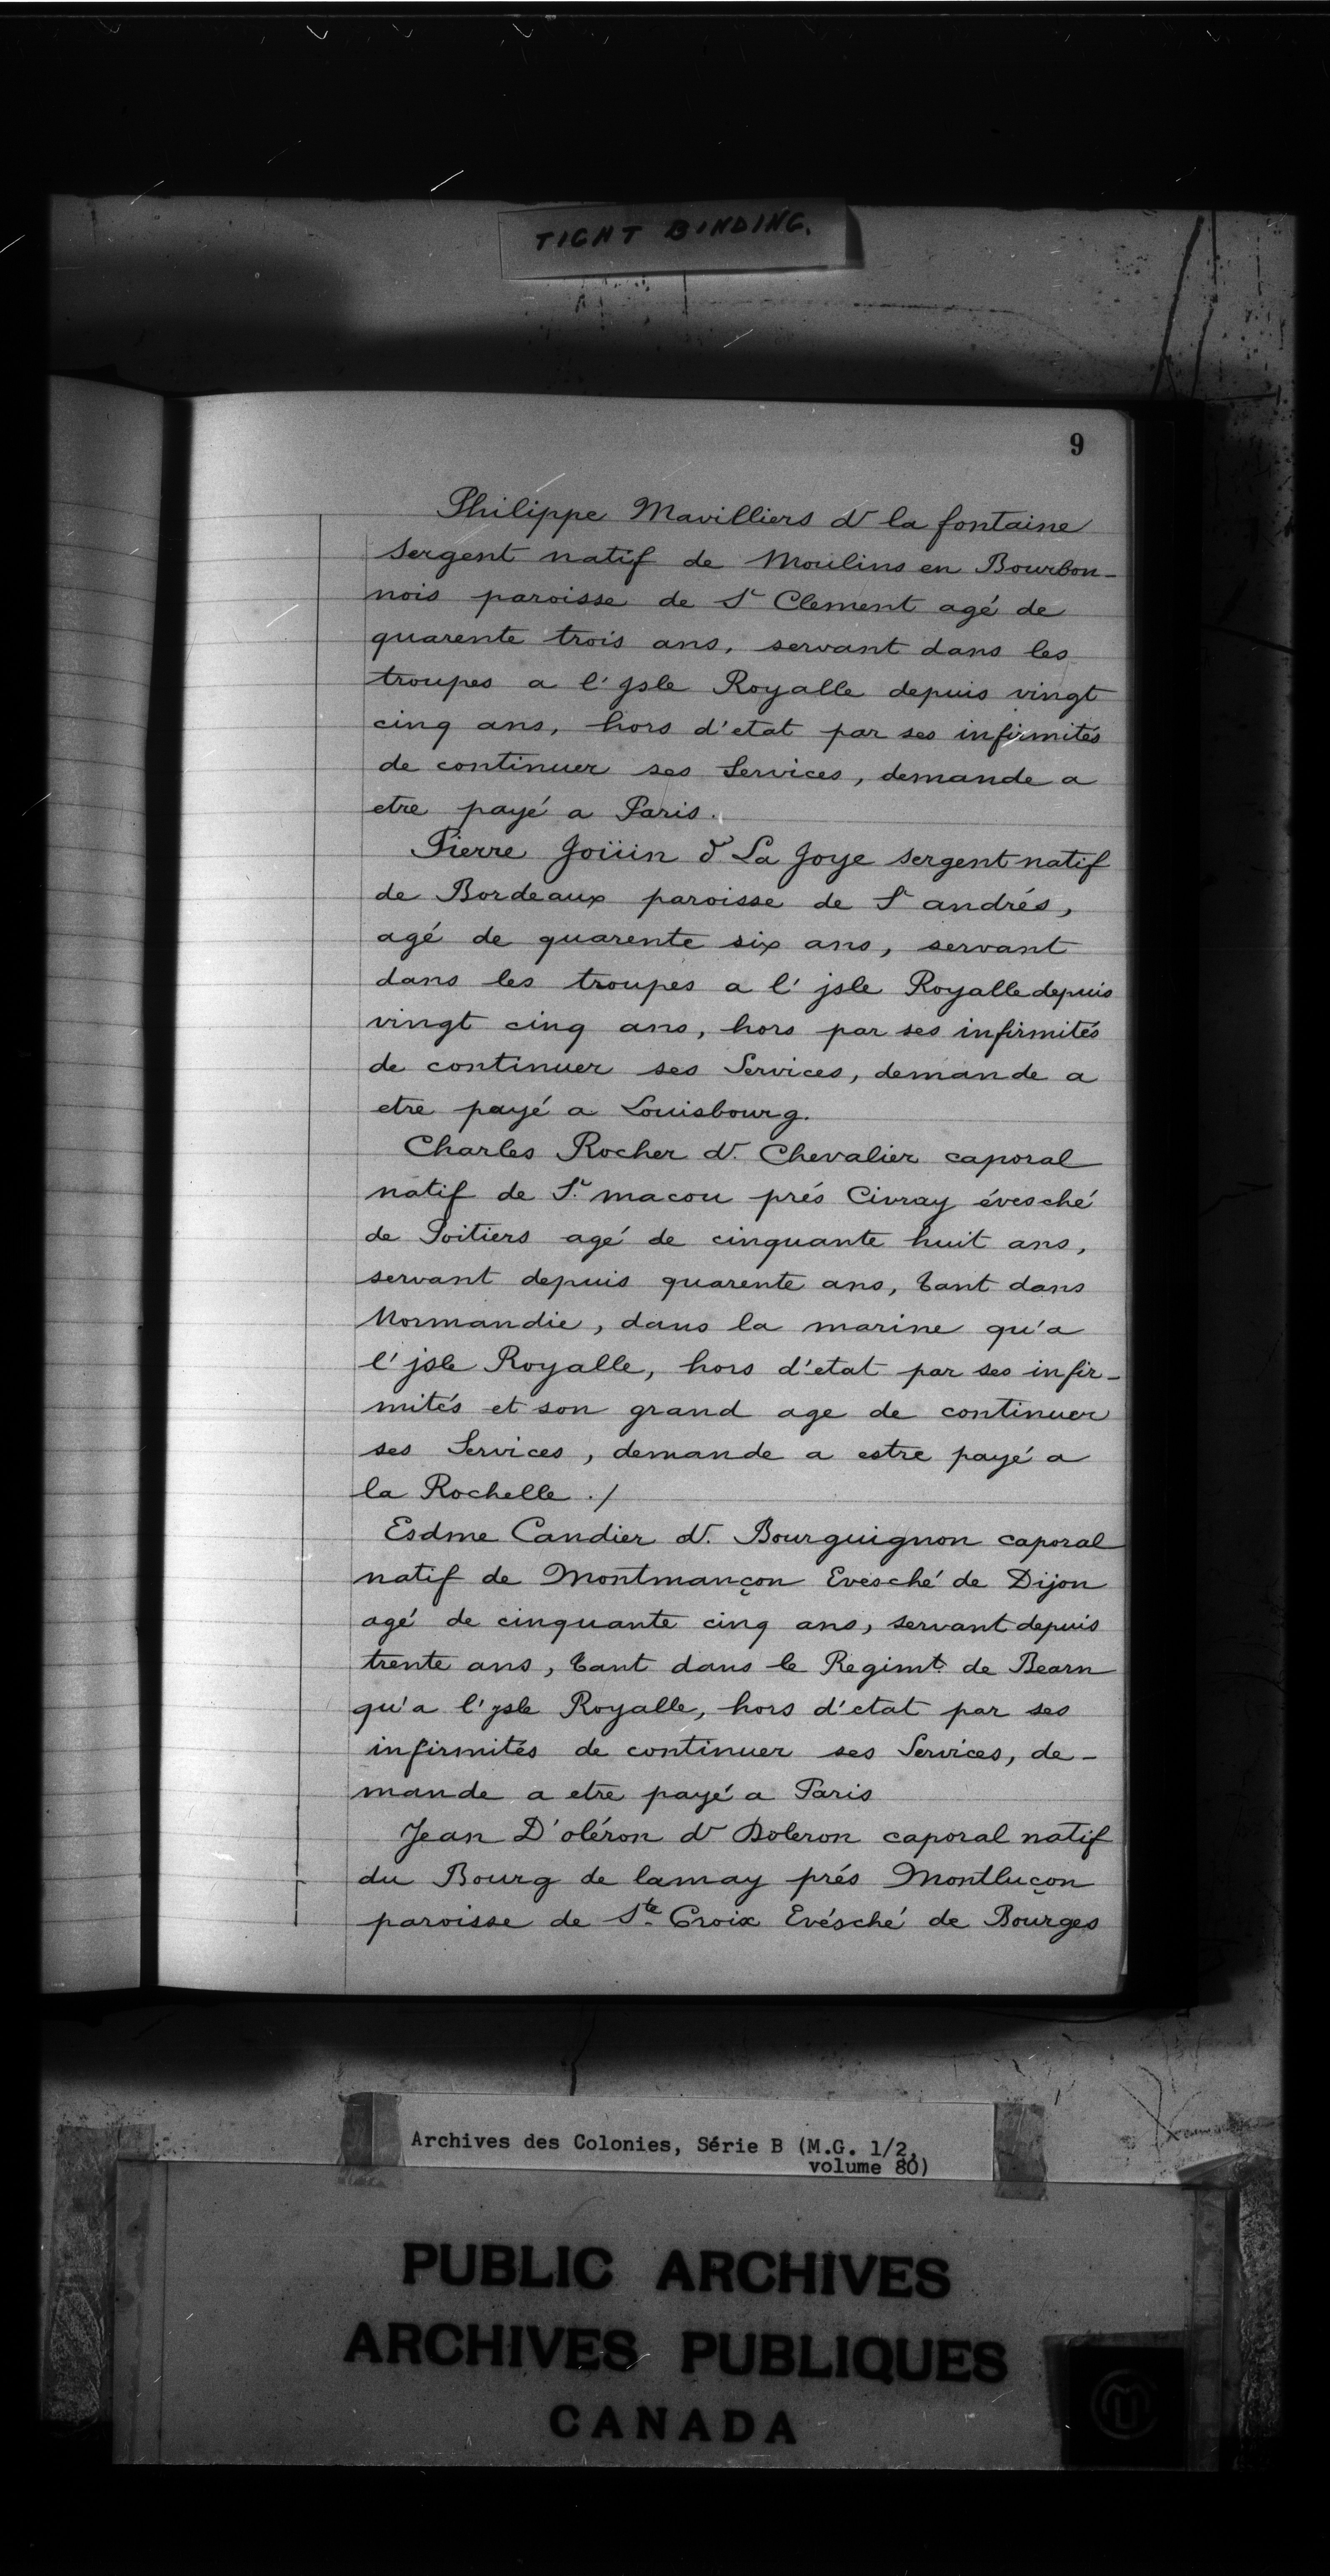 TIGHT BINDING.
9
Philippe Mavilliers d. la fontaine
Sergent natif de Moulins en Bourbon-
nois paroisse de St Clement agé de
quarente trois ans, servant dans les
troupes a l'Jsle Royalle depuis vingt
cinq ans, hors d'etat par ses infirmités
de continuer ses Services, demande a
etre payé a Paris.
Pierre Joüin d. La Joye Sergent natif
de Bordeaux paroisse de St andrés,
agé de quarente six ans, servant
dans les troupes a l'jsle Royalle depuis
vingt cinq ans, hors par ses infirmités
de continuer ses Services, demande a
etre payé a Louisbourg.
Charles Rocher d. Chevalier caporal
natif de St. macou prés Civray évesché
de Poitiers agé de cinquante huit ans,
servant depuis quarente ans, tant dans
Normandie, dans la marine qu'a
l'jsle Royalle, hors d'etat par ses infir-
mités et son grand age de continuer
ses Services, demande a estre payé a
la Rochelle ./
Esdme Candier d. Bourguignon caporal
natif de Montmançon Evesché de Dijon
agé de cinquante cinq ans, servant depuis
trente ans, tant dans le Regimt. de Bearn
qu'a l'ysle Royalle, hors d'etat par ses
infirmités de continuer ses Services, de-
mande a etre payé a Paris
Jean D'oléron d. Doleron caporal natif
du Bourg de lamay prés Montluçon
paroisse de Ste. Croix Evésché de Bourges
Archives des Colonies, Série B (M.G. 1/2,
volume 80)
PUBLIC ARCHIVES
ARCHIVES PUBLIQUES
CANADA